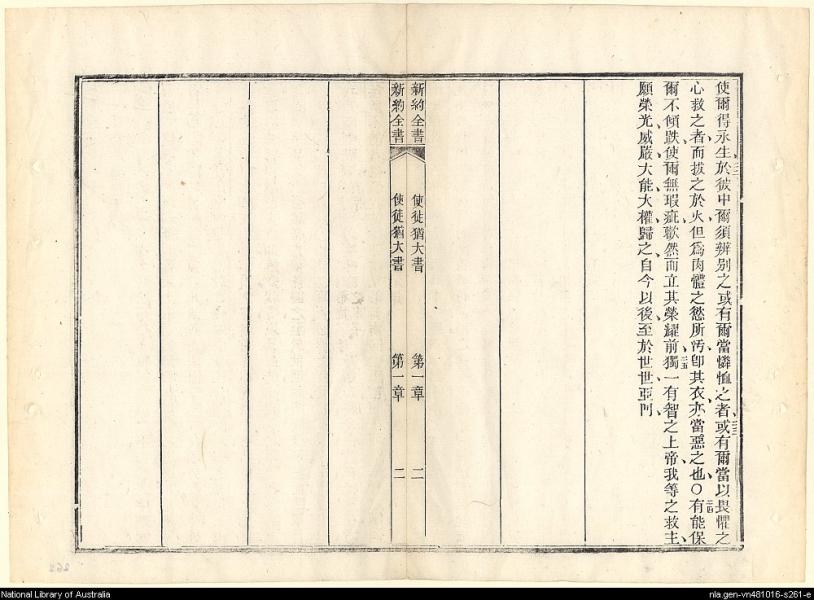 使爾得永生於彼中爾須辨別之或有爾當憐恤之者或有爾當以畏懼之
心救之者而拔之於火但爲肉體之慾所汚卽其衣亦當惡之也○有能保
爾不傾跌使爾無瑕疵歡然而立其榮耀前獨一有智之上帝我等之救主
願榮光威嚴大能大權歸之自今以後至於世世亞門
新約全書 使徒猶大書 第一章 二
新約全書 使徒猶大書 第一章 二
National Library of Australia
nla.gen-vn481016-s261-e